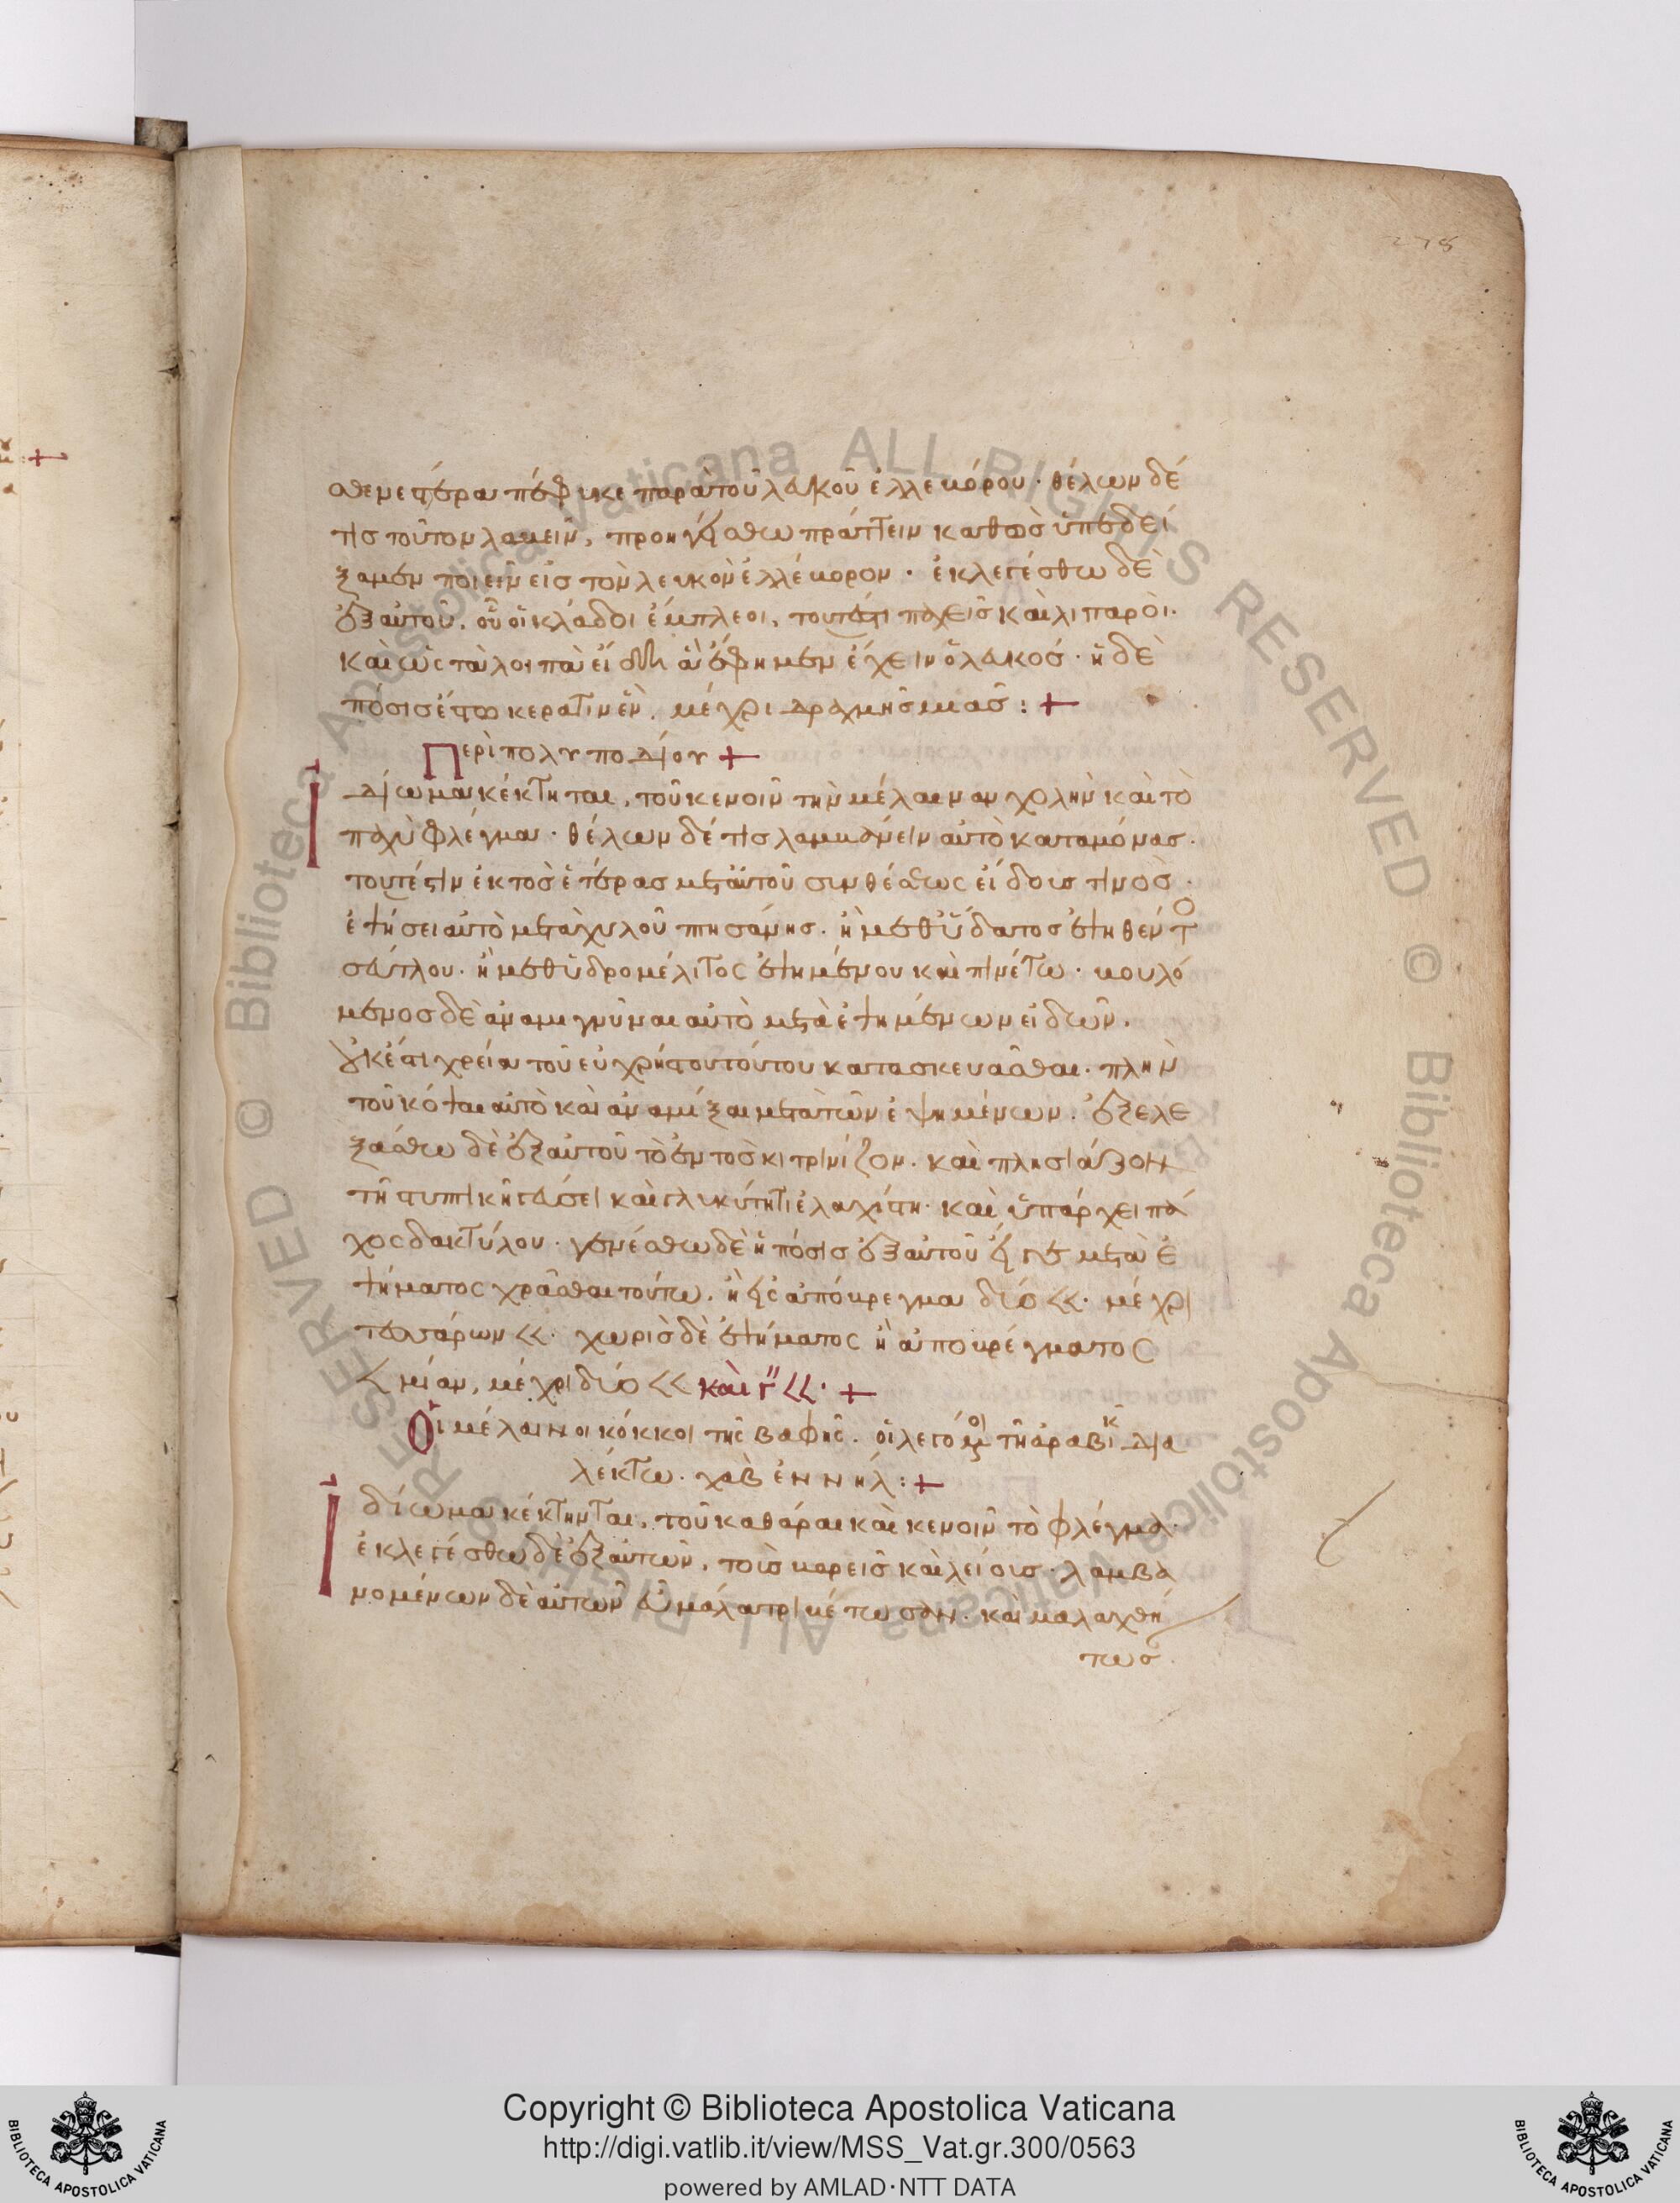 278
σθενεστέρα πέφυκε παρὰ τοῦ λευκοῦ ἐλλεβόρου· θέλων δέ
τις τοῦτον λαβεῖν, προηγείσθω πράττειν καθὼς ὑπεδεί
ξαμεν ποιεῖν εἰς τὸν λευκὸν ἐλλέβορον· ἐκλεγέσθω δὲ
ἐξ αὐτοῦ, οὗ οἱ κλάδοι ἔμπλεοι, τουτέστι παχεῖς καὶ λιπαροί·
καὶ ὡς τὰ λοιπὰ εἴδη ἃ ἔφημεν ἔχειν ὁ λευκός· ἡ δὲ
πόσις ἔστω κερατίν ἕν, μέχρι δραχμῆς μιᾶς :+
Περὶ πολυποδίου +
Ἰδίωμα κέκτηται, τοῦ κενοῖν τὴν μέλαιναν χολὴν καὶ τὸ
παχὺ φλέγμα· θέλων δέ τις λαμβάνειν αὐτὸ καταμόνας·
τουτέστιν ἐκτὸς ἑτέρας μετ' αὐτοῦ συνθέσεως εἴδους τινός·
ἑψήσει αὐτὸ μετὰ χυλοῦ πτησάνης· ἢ μεθ' ὕδατος ἑψηθέντο
σεύτλου· ἢ μεθ' ὑδρομέλιτος ἑψημένου καὶ πινέτω· βουλό
μενος δὲ ἀναμιγνύναι αὐτὸ μετὰ ἑψημένων εἰδῶν,
οὐκ ἔστι χρεία τοῦ εὐχρήστου τούτου κατασκευᾶσθαι· πλὴν
τοῦ κόψαι αὐτὸ καὶ ἀναμίξαι μετὰ τῶν ἑψημένων· ἐξελε
ξάσθω δὲ ἐξ αὐτοῦ τὸ ἐντὸς κιτρινίζον· καὶ πλησιάζον
τῇ στυπτικῇ γεύσει καὶ γλυκύτητι ἐλαχίστη· καὶ ὑπάρχει πά
χος δακτύλου· γενέσθω δὲ ἡ πόσις ἐξ αὐτοῦ μετὰ ἑ
ψήματος χρᾶσθαι τούτω, ἢ εἰς ἀπόβρεγμα δύο <<· μέχρι
τεσσάρων <<· χωρὶς δὲ ἑψήματος ἢ ἀποβρέγματος
< μίαν, μέχρι δύο << καὶ γ'' <<· +
Οἱ μέλαινοι κόκκοι τῆς βαφῆς· οἱ λεγόμενοι τῇ ἀραβικ δια
λέκτω· χαβ ἐννήλ :+
Ἰδίωμα κέκτηνται, τοῦ καθάραι καὶ κενοῖν τὸ φλέγμα·
ἐκλεγέσθω δὲ ἐξ αὐτῶν, τοὺς βαρεῖς καὶ λείους· λαμβα
νομένων δὲ αὐτῶν εὖ μάλα τριβέτωσαν· καὶ μαλαχθή
τωσ
Copyright © Biblioteca Apostolica Vaticana
http://digi.vatlib.it/view/MSS_Vat.gr.300/0563
powered by AMLAD·NTT DATA
BIBLIOTECA APOSTOLICA VATICANA
BIBLIOTECA APOSTOLICA VATICANA
© Biblioteca Apostolica Vaticana ALL RIGHTS RESERVED © Biblioteca Apostolica Vaticana ALL RIGHTS RESERVED